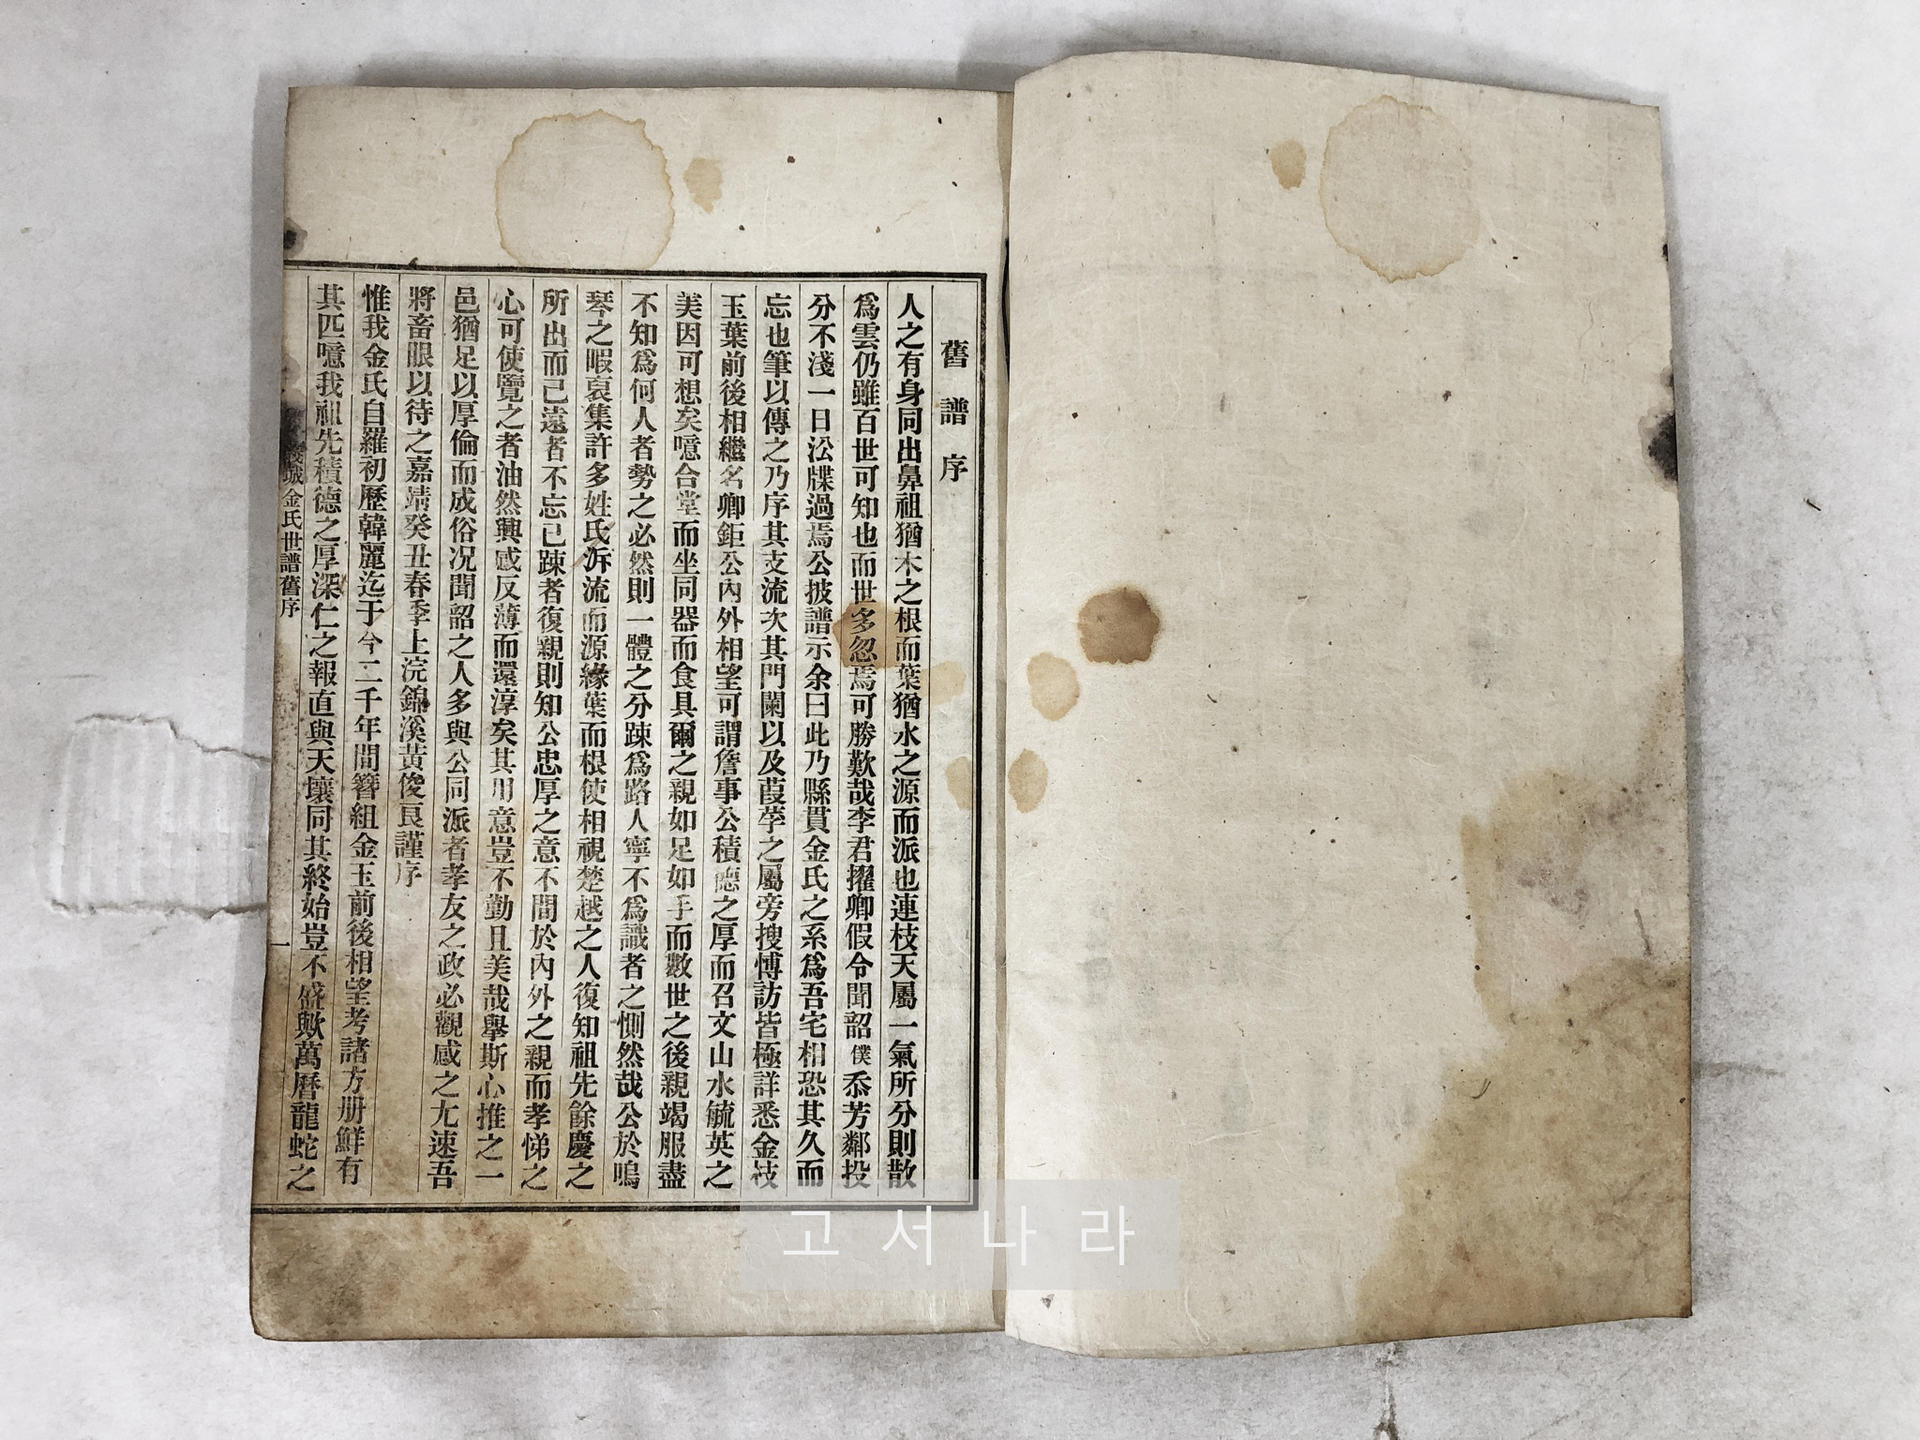 舊譜序
人之有身同出鼻祖猶木之根而葉猶水之源而派也連枝天屬一氣所分則散
爲雲仍雖百世可知也而世多忽焉可勝歎哉李君擢卿假令聞韶僕忝芳鄰投
分不淺一日泓牒過焉公披譜示余曰此乃縣貫金氏之系爲吾宅相恐其久而
忘也筆以傳之乃序其支流次其門闌以及葭莩之屬旁搜博訪皆極詳悉金枝
玉葉前後相繼名卿鉅公內外相望可謂詹事公積德之厚而召文山水毓英之
美因可想矣噫合堂而坐同器而食具爾之親如足如手而數世之後親竭服盡
不知爲何人者勢之必然則一體之分踈爲路人寧不爲識者之惻然哉公於鳴
琴之暇裒集許多姓氏泝流而源緣葉而根使相視楚越之人復知祖先餘慶之
所出而已遠者不忘已踈者復親則知公忠厚之意不間於內外之親而孝悌之
心可使覽之者油然興感反薄而還淳矣其用意豈不勤且美哉擧斯心推之一
邑猶足以厚倫而成俗况聞韶之人多與公同派者孝友之政必觀感之尤速吾
將畜眼以待之嘉靖癸丑春季上浣錦溪黃俊良謹序
惟我金氏自羅初歷韓麗迄于今二千年間簪組金玉前後相望考諸方册鮮有
其匹噫我祖先積德之厚深仁之報直與天壤同其終始豈不盛歟萬曆龍蛇之
城金氏世譜舊序
一
고서나라